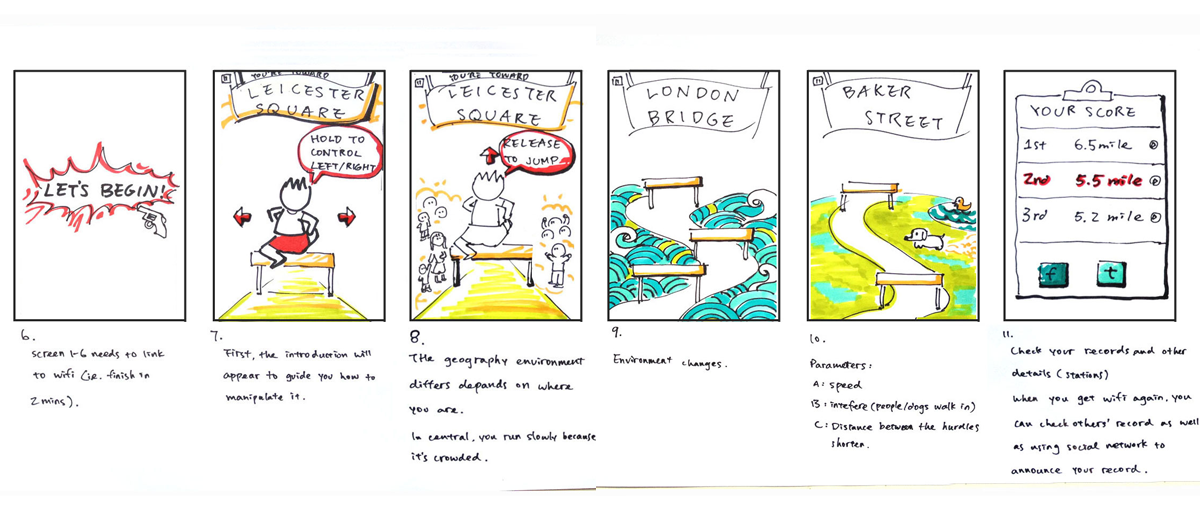 LET'S BEGIN!
6.
screen 1-6 needs to link
to wifi (ie. finish in
2 mins).
YOU'RE TOWARD
LEICESTER
SQUARE
HOLD TO
CONTROL
LEFT/RIGHT
7.
First, the introduction will
appear to guide you how to
manipulate it.
YOU'RE TOWARD
LEICESTER
SQUARE
RELEASE
TO JUMP
8.
The geography environment
differs depands on where
you are.
In central, you run slowly because
it's crowded.
LONDON
BRIDGE
9.
Environment changes.
BAKER
STREET
10.
Parameters:
A: speed
B: intefere (people/dogs walk in)
C: Distance between the hurdles
shorten.
YOUR SCORE
1st 6.5 mile
2nd 5.5 mile
3rd 5.2 mile
f t
11.
Check your records and other
details (stations)
When you get wifi again, you
can check others' record as well
as using social network to
announce your record.